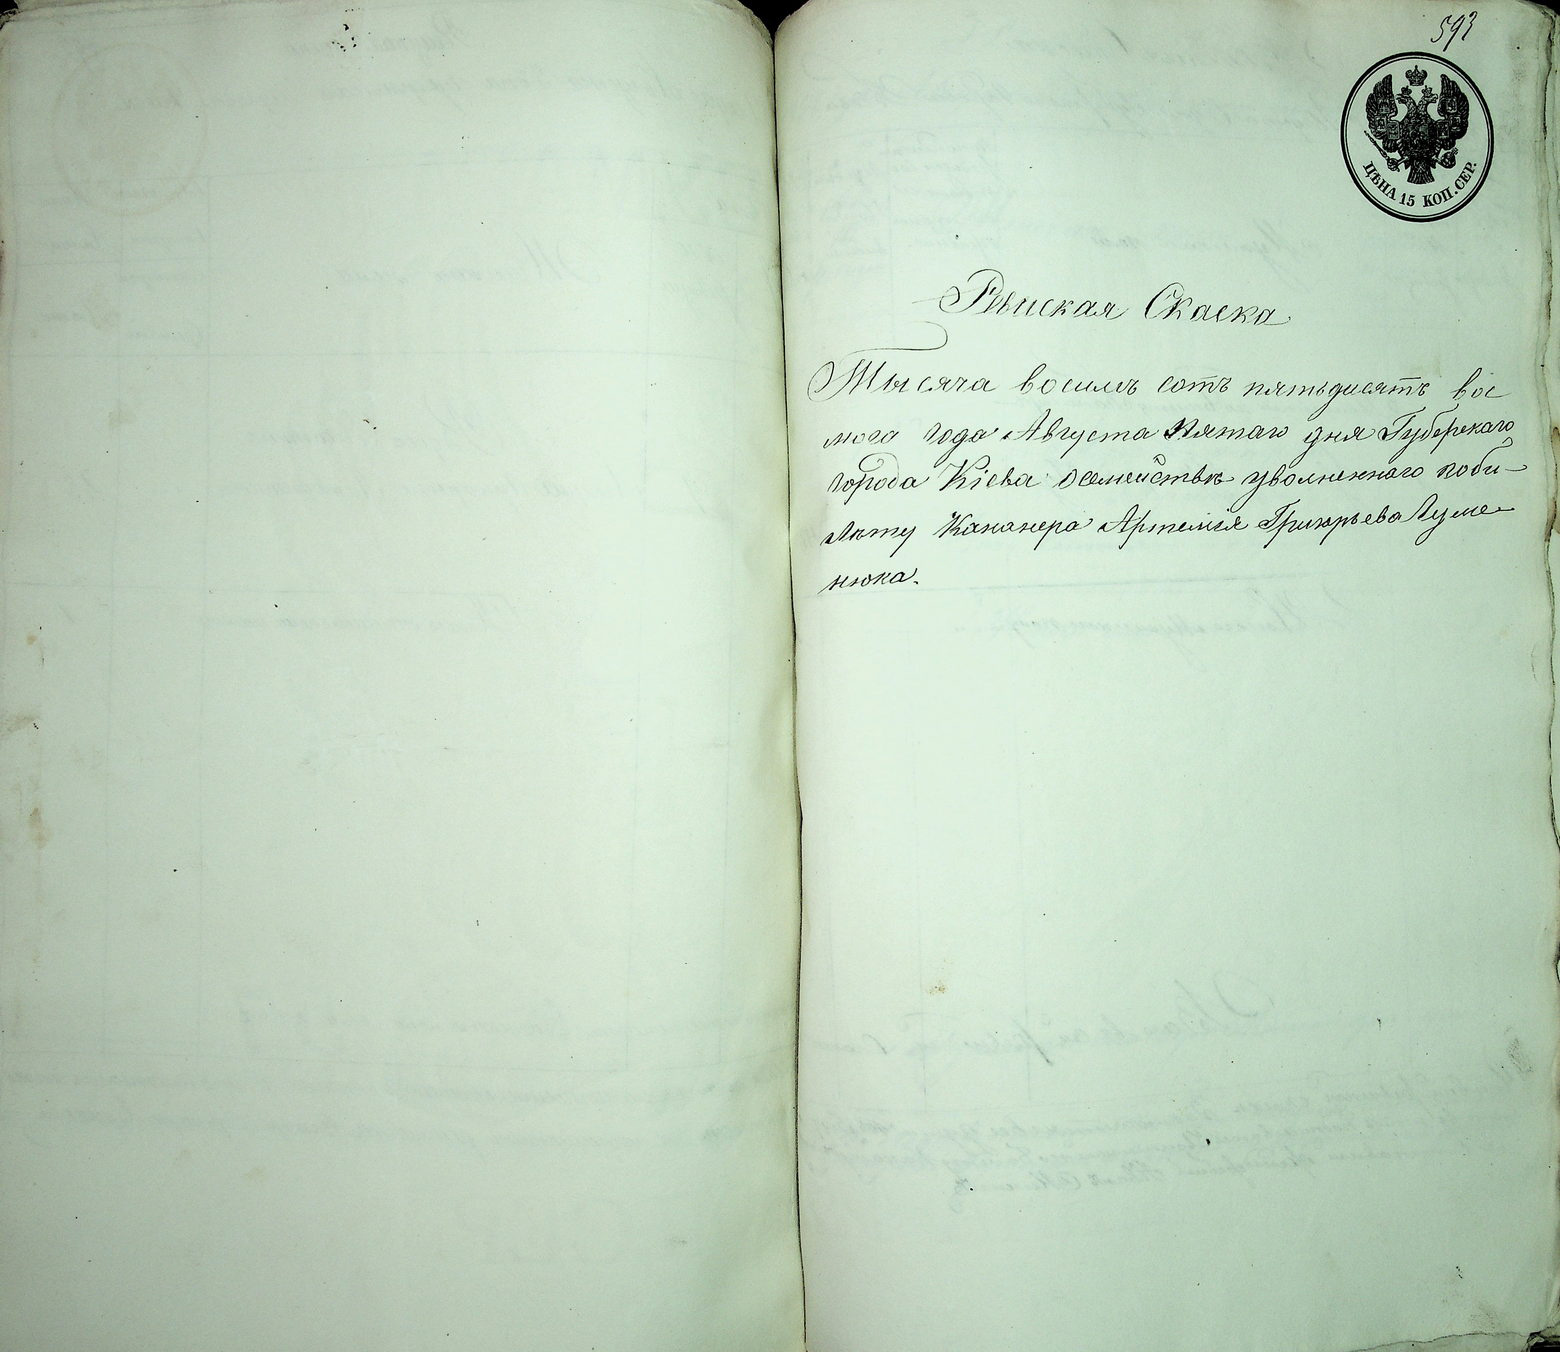 593
ЦѢНА 15 КОП. СЕР.
Ревиская Скаска
Тысяча восимъ сотъ пятьдисятъ вос
мога года Августа Пятаго дня Губерскаго
города Кіева осемействѣ уволненнаго поби-
лѣту Кананера Артемія Григорьева Луме-
нюка.